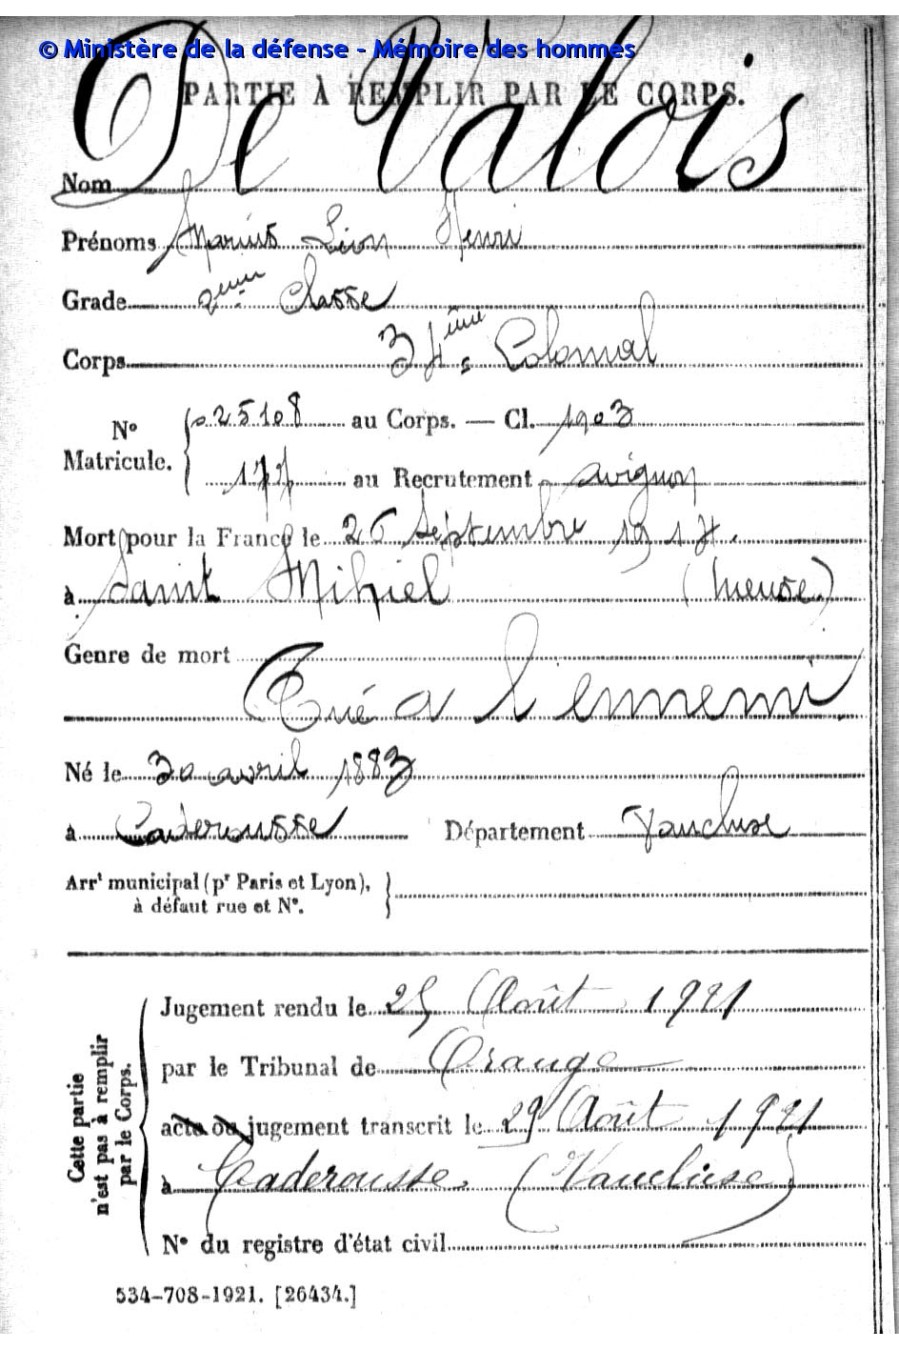 © Ministère de la défense - Mémoire des hommes
PARTIE À REMPLIR PAR LE CORPS.
Nom De Valois
Prénoms Marius Léon Henri
Grade 2ème Classe
Corps 34ème Colonial
N° Matricule. 025108 au Corps. — Cl. 1903
177 au Recrutement Avignon
Mort pour la France le 26 Septembre 1914.
à Saint Mihiel (Meuse)
Genre de mort
Tué a l'ennemi
Né le 30 avril 1883
à Caderousse Département Vaucluse
Arrt municipal (pr Paris et Lyon),
à défaut rue et N°.
Cette partie n'est pas à remplir par le Corps.
Jugement rendu le 25 Août 1921
par le Tribunal de Orange
acte ou jugement transcrit le 29 Août 1921
à Caderousse. (Vaucluse)
N° du registre d'état civil
534-708-1921. [26434.]